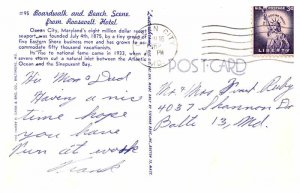 95 Boardwalk and Beach Scene
from Roosevelt Hotel.
Ocean City, Maryland's eight million dollar resort
seaport, was founded July 4th, 1875, by a tiny group of
five Eastern Shore business men and has grown to ac-
commodate fifty thousand vacationers.
to national fame in 1933, when a
severe storm cut a natural inlet between the Atlantic
Ocean and the Sinepuxent Bay.
Hi Mom & Dad
Having a nice
time hope
you have
fun at work
Frank
POST CARD
U.S. POSTAGE 3¢
LIBERTY
Mr & Mrs Frank Ruby
4037 Shannon Dr
Balto 13, Md.